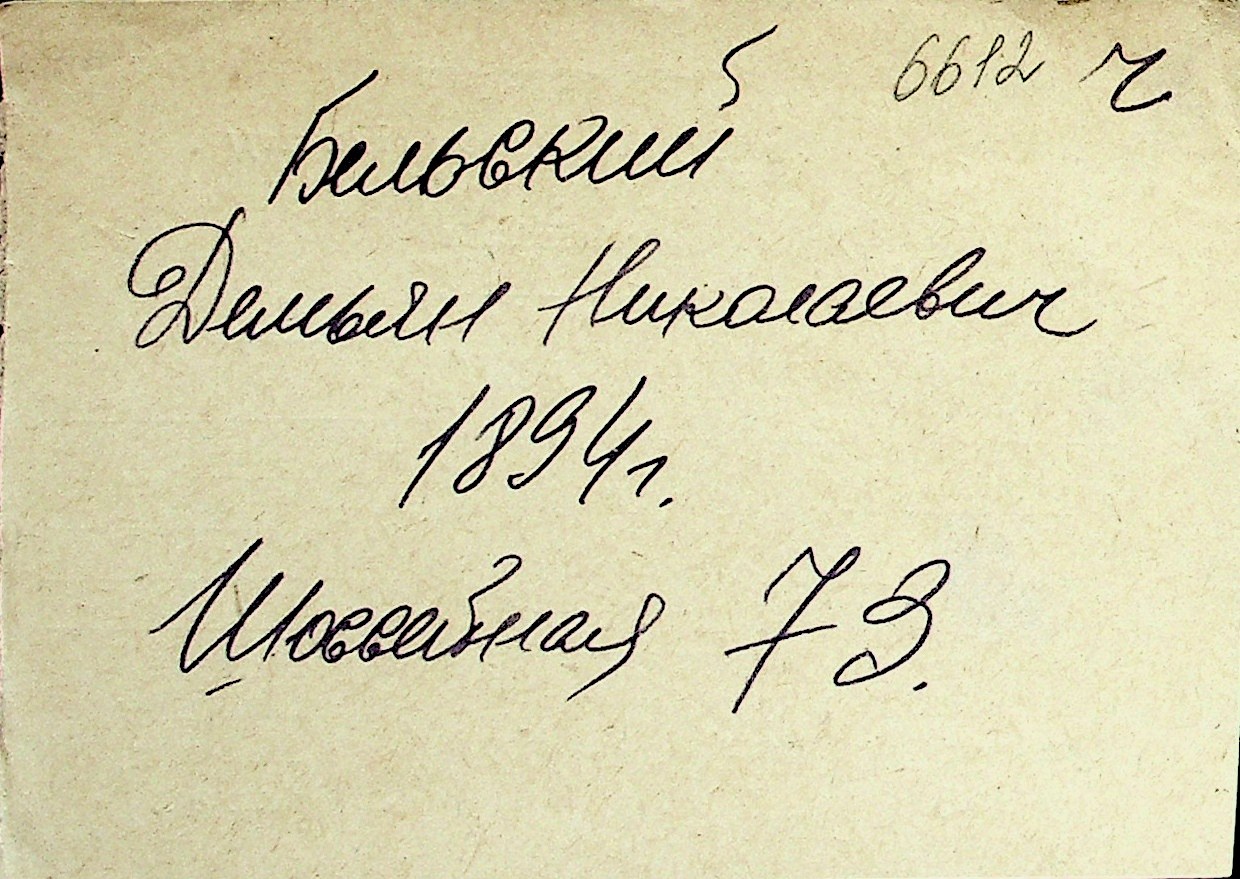 6612 ч
Бельский
Демьян Николаевич
1894г.
Шоссейная 73.